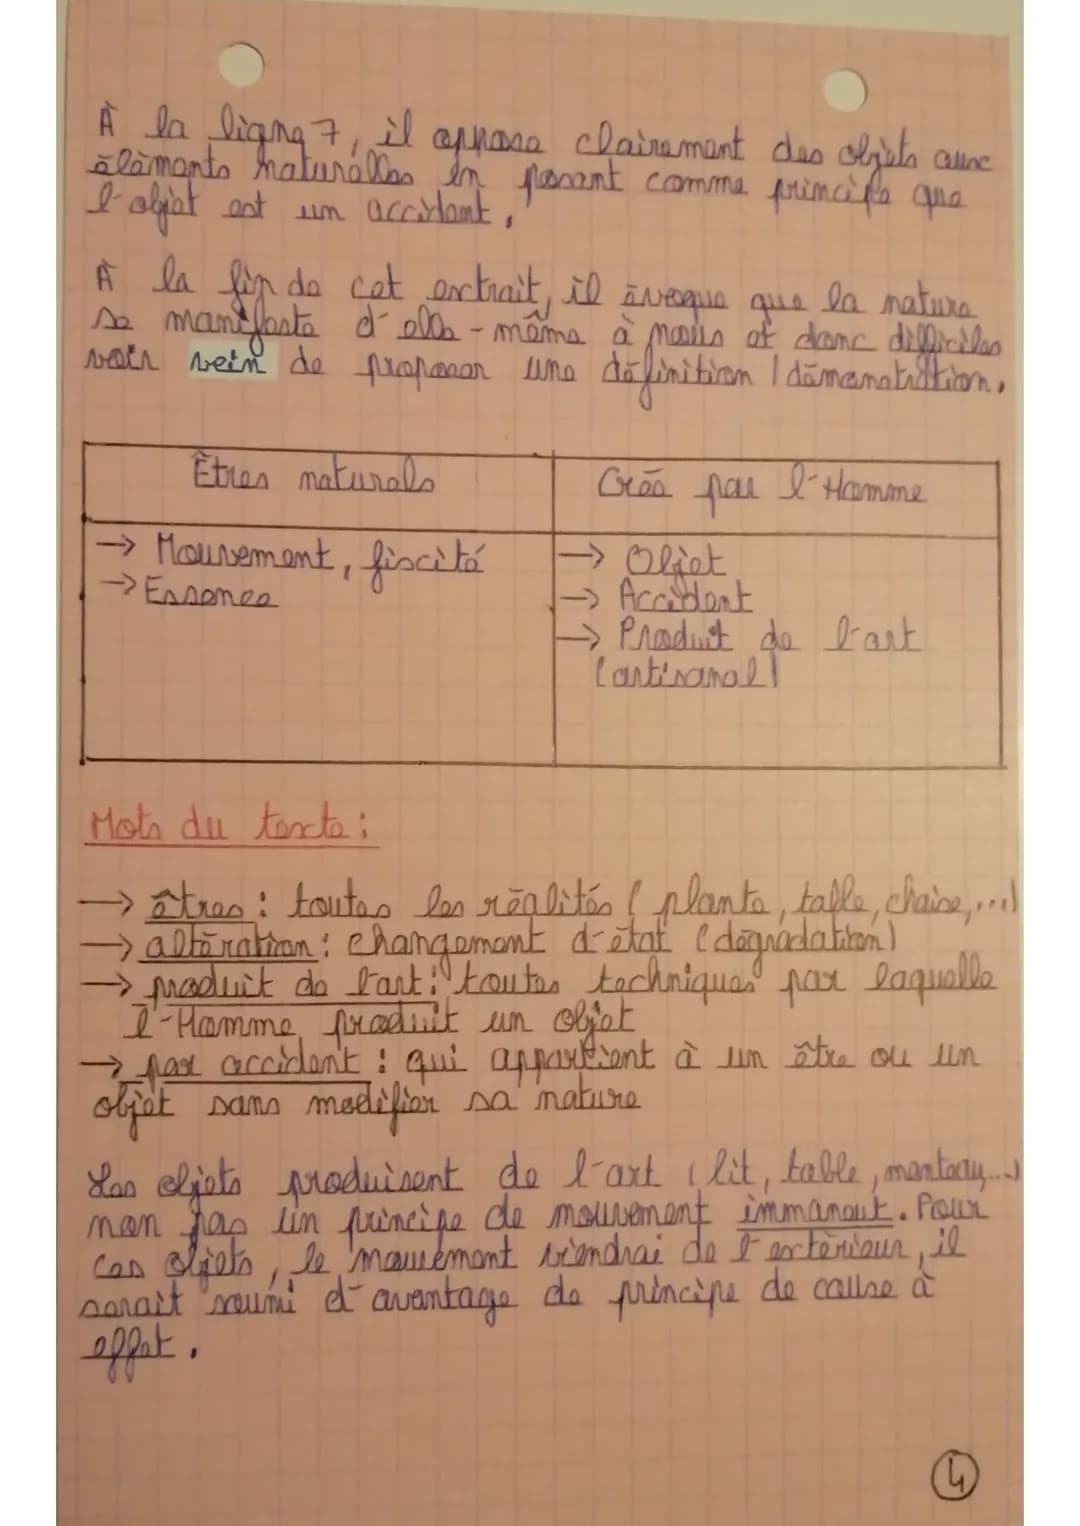 À la ligne 7, il oppose clairement des objets avec
élèments naturélles en posant comme principe que
l'objet est un accident.
À la fin de cet extrait, il évoque que la nature
se manifeste d'elle-même à nous et donc difficiles
voir vein de proposer une définition / démonstration.
Êtres naturels
Créé par l'Homme
→ Mouvement, fiscité
→ Essence
→ Objet
→ Accident
→ Produit de l'art
(artisanal)
Mots du texte :
→ êtres : toutes les réalités (plante, table, chaise,...)
→ altération : changement d'état (dégradation)
→ produit de l'art : toutes techniques par laquelle
l'Homme produit un objet
→ par accident : qui appartient à un être ou un
objet sans modifier sa nature
Les objets produisent de l'art (lit, table, manteau,...)
non pas un principe de mouvement immanent. Pour
ces objets, le mouvement viendrai de l'extérieur, il
serait soumi d'avantage de principe de cause à
effet.
4